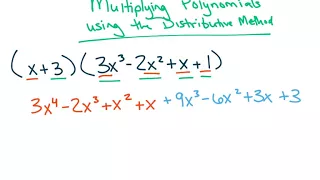 Multiplying Polynomials
using the Distributive Method
(x+3)(3x³-2x²+x+1)
3x⁴-2x³+x²+x+9x³-6x²+3x+3